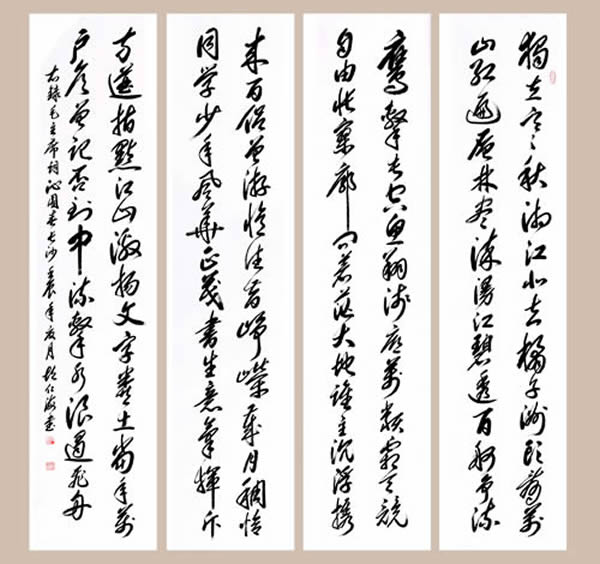 獨立寒秋湘江北去橘子洲头看萬
山红遍层林尽染漫江碧透百舸争流
鹰擊长空鱼翔浅底萬类霜天競
自由怅寥廓问苍茫大地谁主沉浮携
来百侣曾游忆往昔峥嵘歲月稠恰
同学少年风華正茂書生意氣揮斥
方遒指點江山激扬文字粪土當年萬
户侯曾记否到中流擊水浪遏飛舟
右録毛主席词沁園春长沙壬辰年夏月仁海書